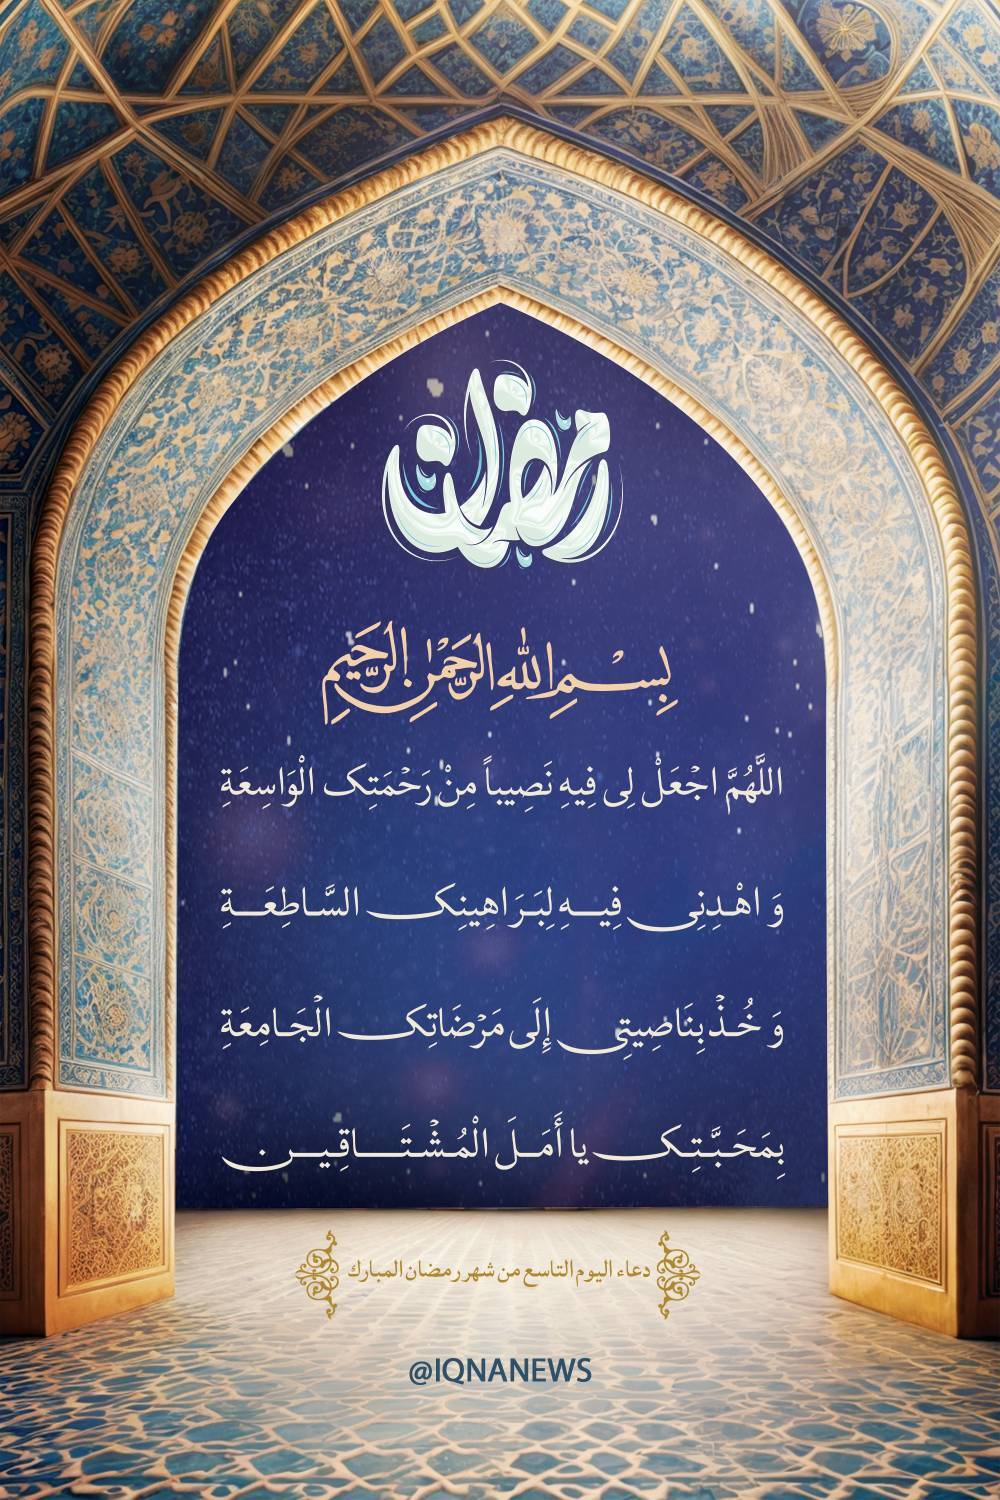 رمضان
بِسْمِ اللهِ الرَّحْمٰنِ الرَّحِيمِ
اللَّهُمَّ اجْعَلْ لِی فِيهِ نَصِيباً مِنْ رَحْمَتِک الْوَاسِعَةِ
وَ اهْدِنِی فِيهِ لِبَرَاهِينِک السَّاطِعَةِ
وَ خُذْ بِنَاصِيتِی إِلَی مَرْضَاتِک الْجَامِعَةِ
بِمَحَبَّتِک يا أَمَلَ الْمُشْتَاقِينَ.
دعاء اليوم التاسع من شهر رمضان المبارك
@IQNANEWS